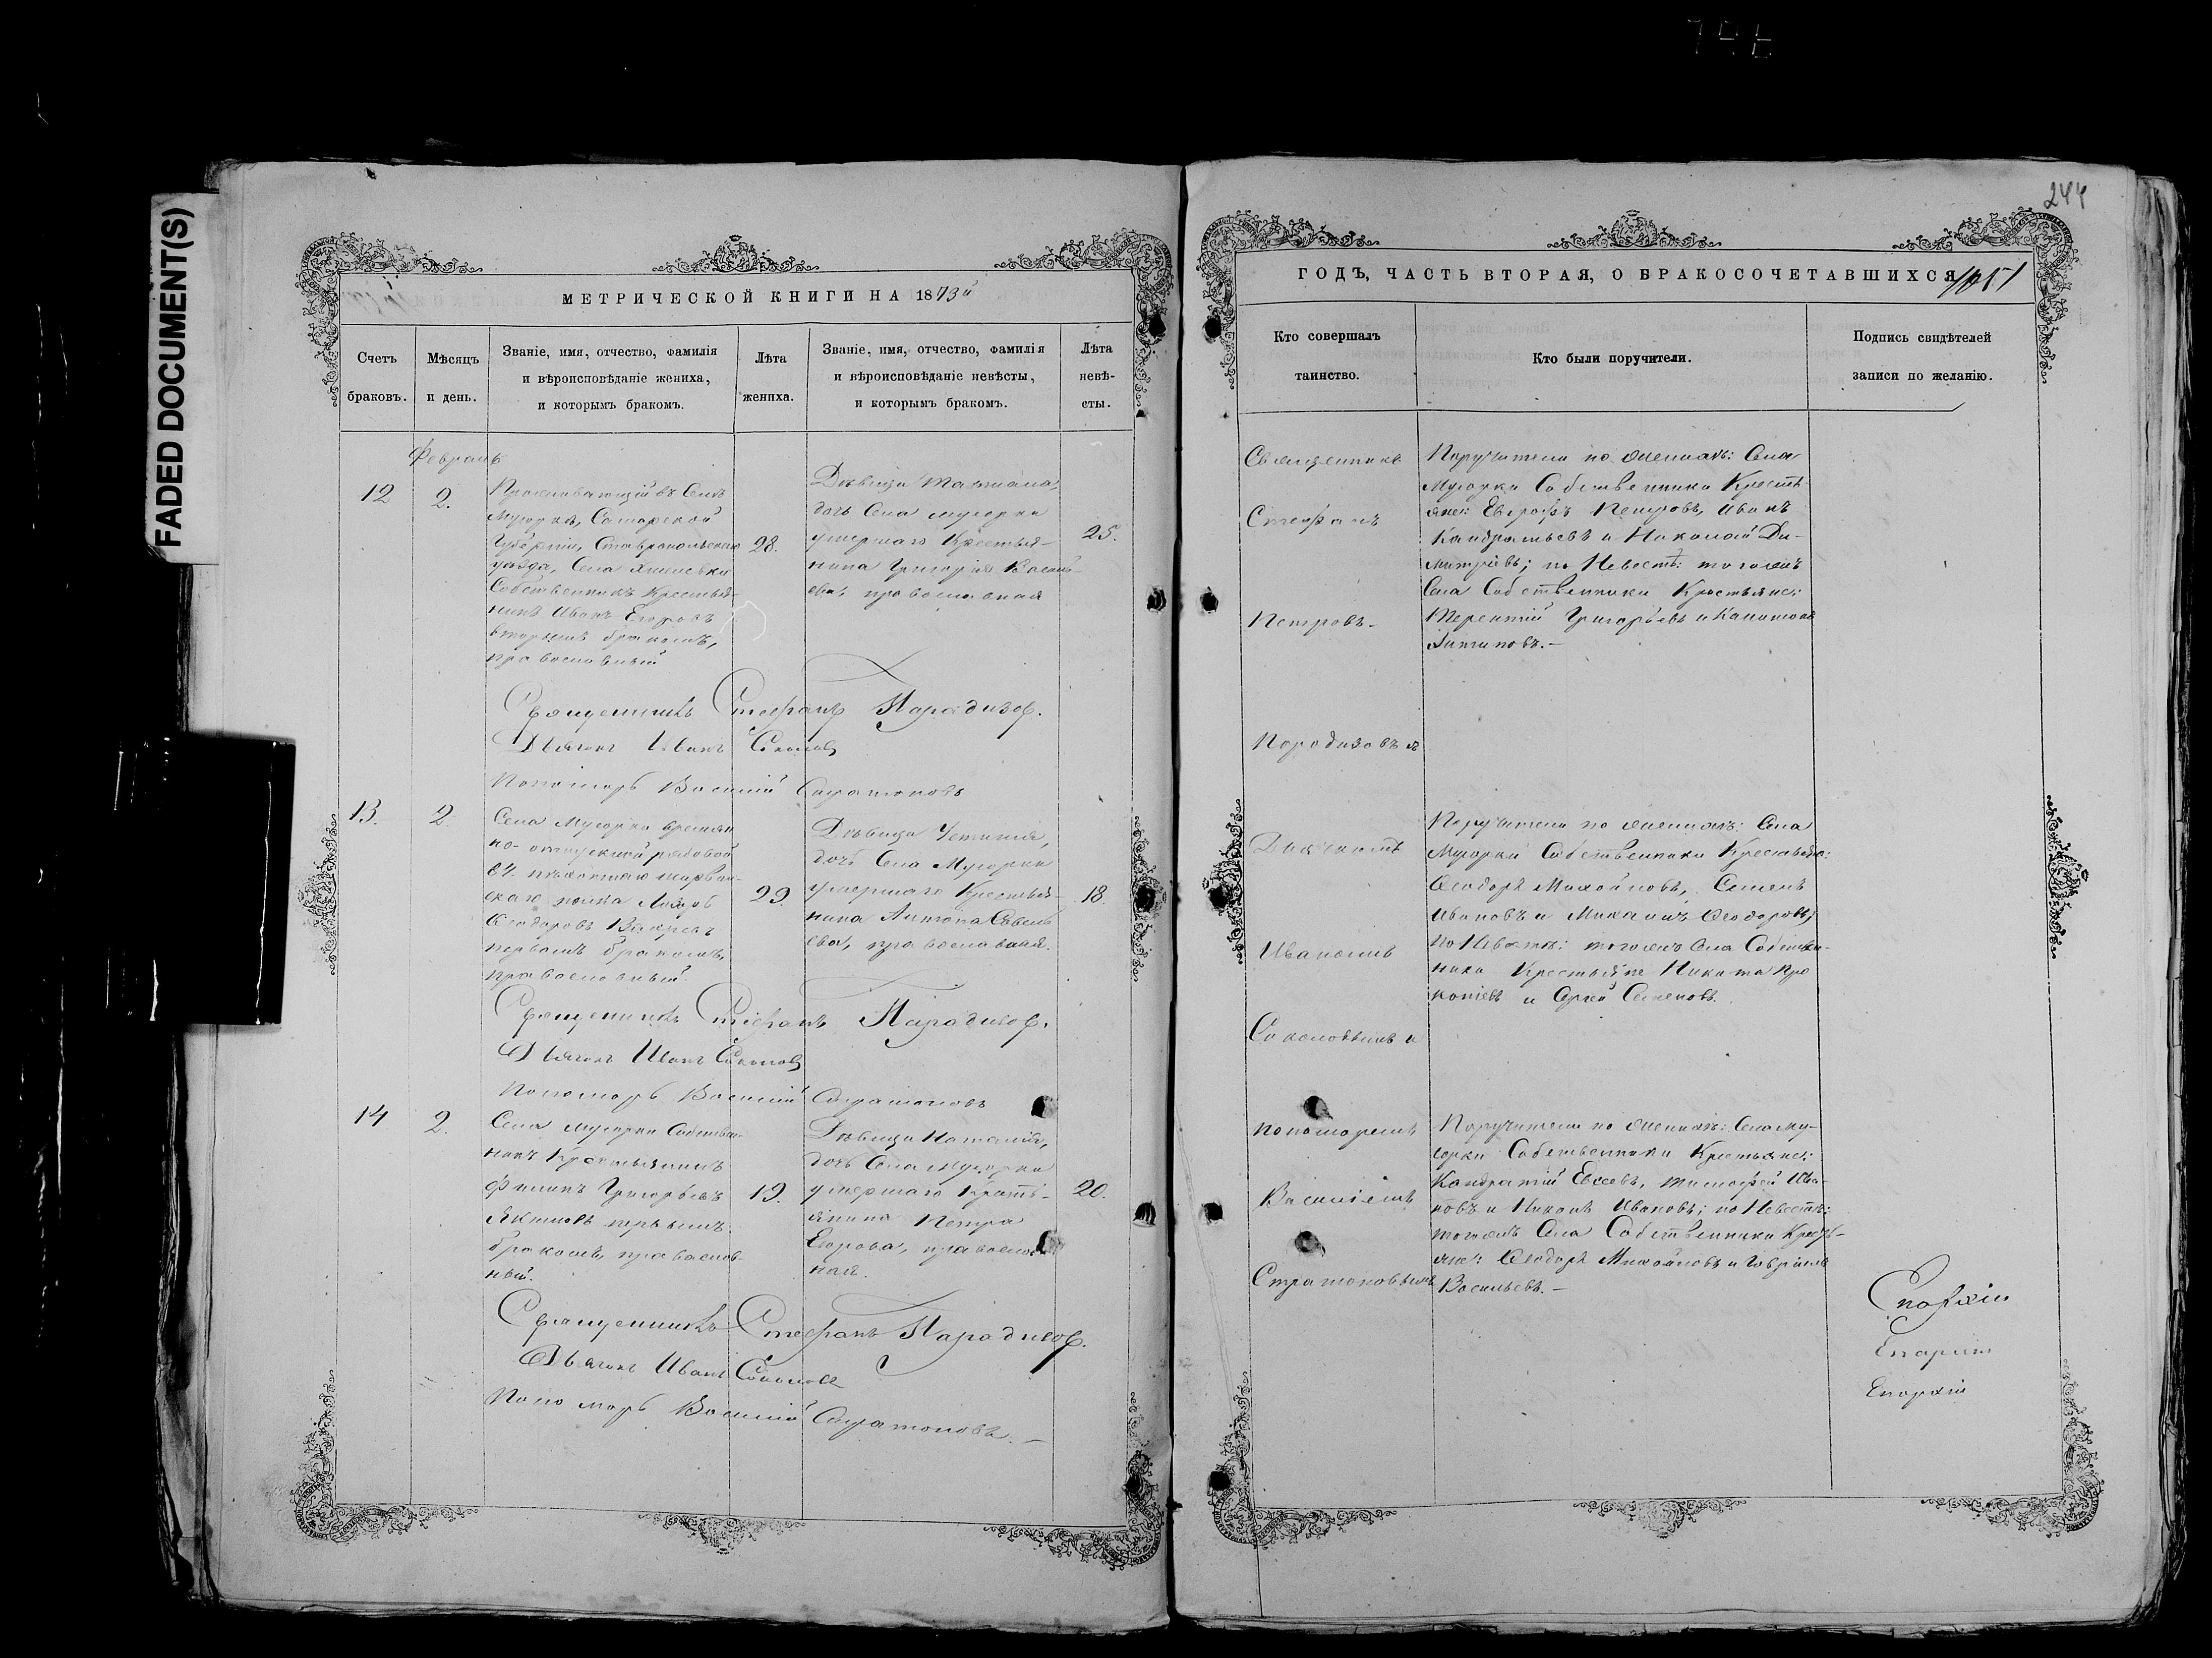 FADED DOCUMENT(S)
244
МЕТРИЧЕСКОЙ КНИГИ НА 1873й
Счетъ браковъ.
Мѣсяцъ и день.
Званіе, имя, отчество, фамилія
и вѣроисповѣданіе жениха,
и которымъ бракомъ.
Лѣта жениха.
Званіе, имя, отчество, фамилія
и вѣроисповѣданіе невѣсты,
и которымъ бракомъ.
Лѣта невѣ-
сты.
Февраль
12
2.
Проживающій въ Селѣ
Мусоркѣ, Самарской
Губерніи, Ставропольскаго
уѣзда, Села
Собственникъ Крестья-
нинъ Иванъ Егоровъ
вторымъ бракомъ,
православный
28.
Дѣвица Татіана,
дочь Села Мусорки
умершаго Крестья-
нина Григорія Василь
ева, православная
25.
Священникъ Стефанъ Парадизов.
Дьячокъ Иванъ Соколов
Пономарь Василій Стратоновъ
13.
2.
Села Мусорки времен
но-отпускной рядовой
64 пѣхотнаго
скаго полка
Ѳеодоровъ
первымъ бракомъ,
православный.
29.
Дѣвица
дочь Села Мусорки
умершаго Крестья-
нина Антона Савель
ева, православная.
18.
Священникъ Стефанъ Парадизов.
Дьячокъ Иванъ Соколов
Пономарь Василій Стратоновъ
14
2.
Села Мусорки Собствен-
никъ Крестьянинъ
Филипъ Григорьевъ
первымъ
бракомъ, православ-
ный.
19.
Дѣвица Наталія,
дочь Села Мусорки
умершаго Кресть-
янина Петра
Егорова, православ
ная.
20.
Священникъ Стефанъ Парадизов.
Дьячокъ Иванъ Соколов
Пономарь Василій Стратоновъ.—
ГОДЪ, ЧАСТЬ ВТОРАЯ, О БРАКОСОЧЕТАВШИХСЯ
Кто совершалъ
таинство.
Кто были поручители.
Подпись свидѣтелей
записи по желанію.
Священникъ
Стефанъ
Петровъ-
Парадизовъ съ
Дьячкомъ
Иваномъ
Соколовымъ и
пономаремъ
Василіемъ
Стратоновымъ
Поручители по женихѣ: Села
Мусорки Собственники Кресть-
яне: Евграфъ Петровъ, Иванъ
Кандратьевъ и Николай Ди-
митріевъ; по Невѣстѣ: тогожъ
Села Собственники Крестьяне:
Терентій Григорьевъ и Капитонъ
Антиповъ.—
Поручители по женихѣ: Села
Мусорки Собственники Крестьяне:
Ѳеодоръ Михайловъ, Семенъ
Ивановъ и Михаилъ Ѳеодоровъ;
по Невѣстѣ: тогожъ Села Собствен-
ники Крестьяне Никита Про
копіевъ и Сергѣй Семеновъ.
Поручители по женихѣ: Села Му-
сорки Собственники Крестьяне:
Кандратій Евсеевъ, Тимофей Ива-
новъ и Ивановъ; по Невѣстѣ:
тогожъ Села Собственники Кресть-
яне: Ѳеодоръ Михайловъ и Гавріилъ
Васильевъ.—